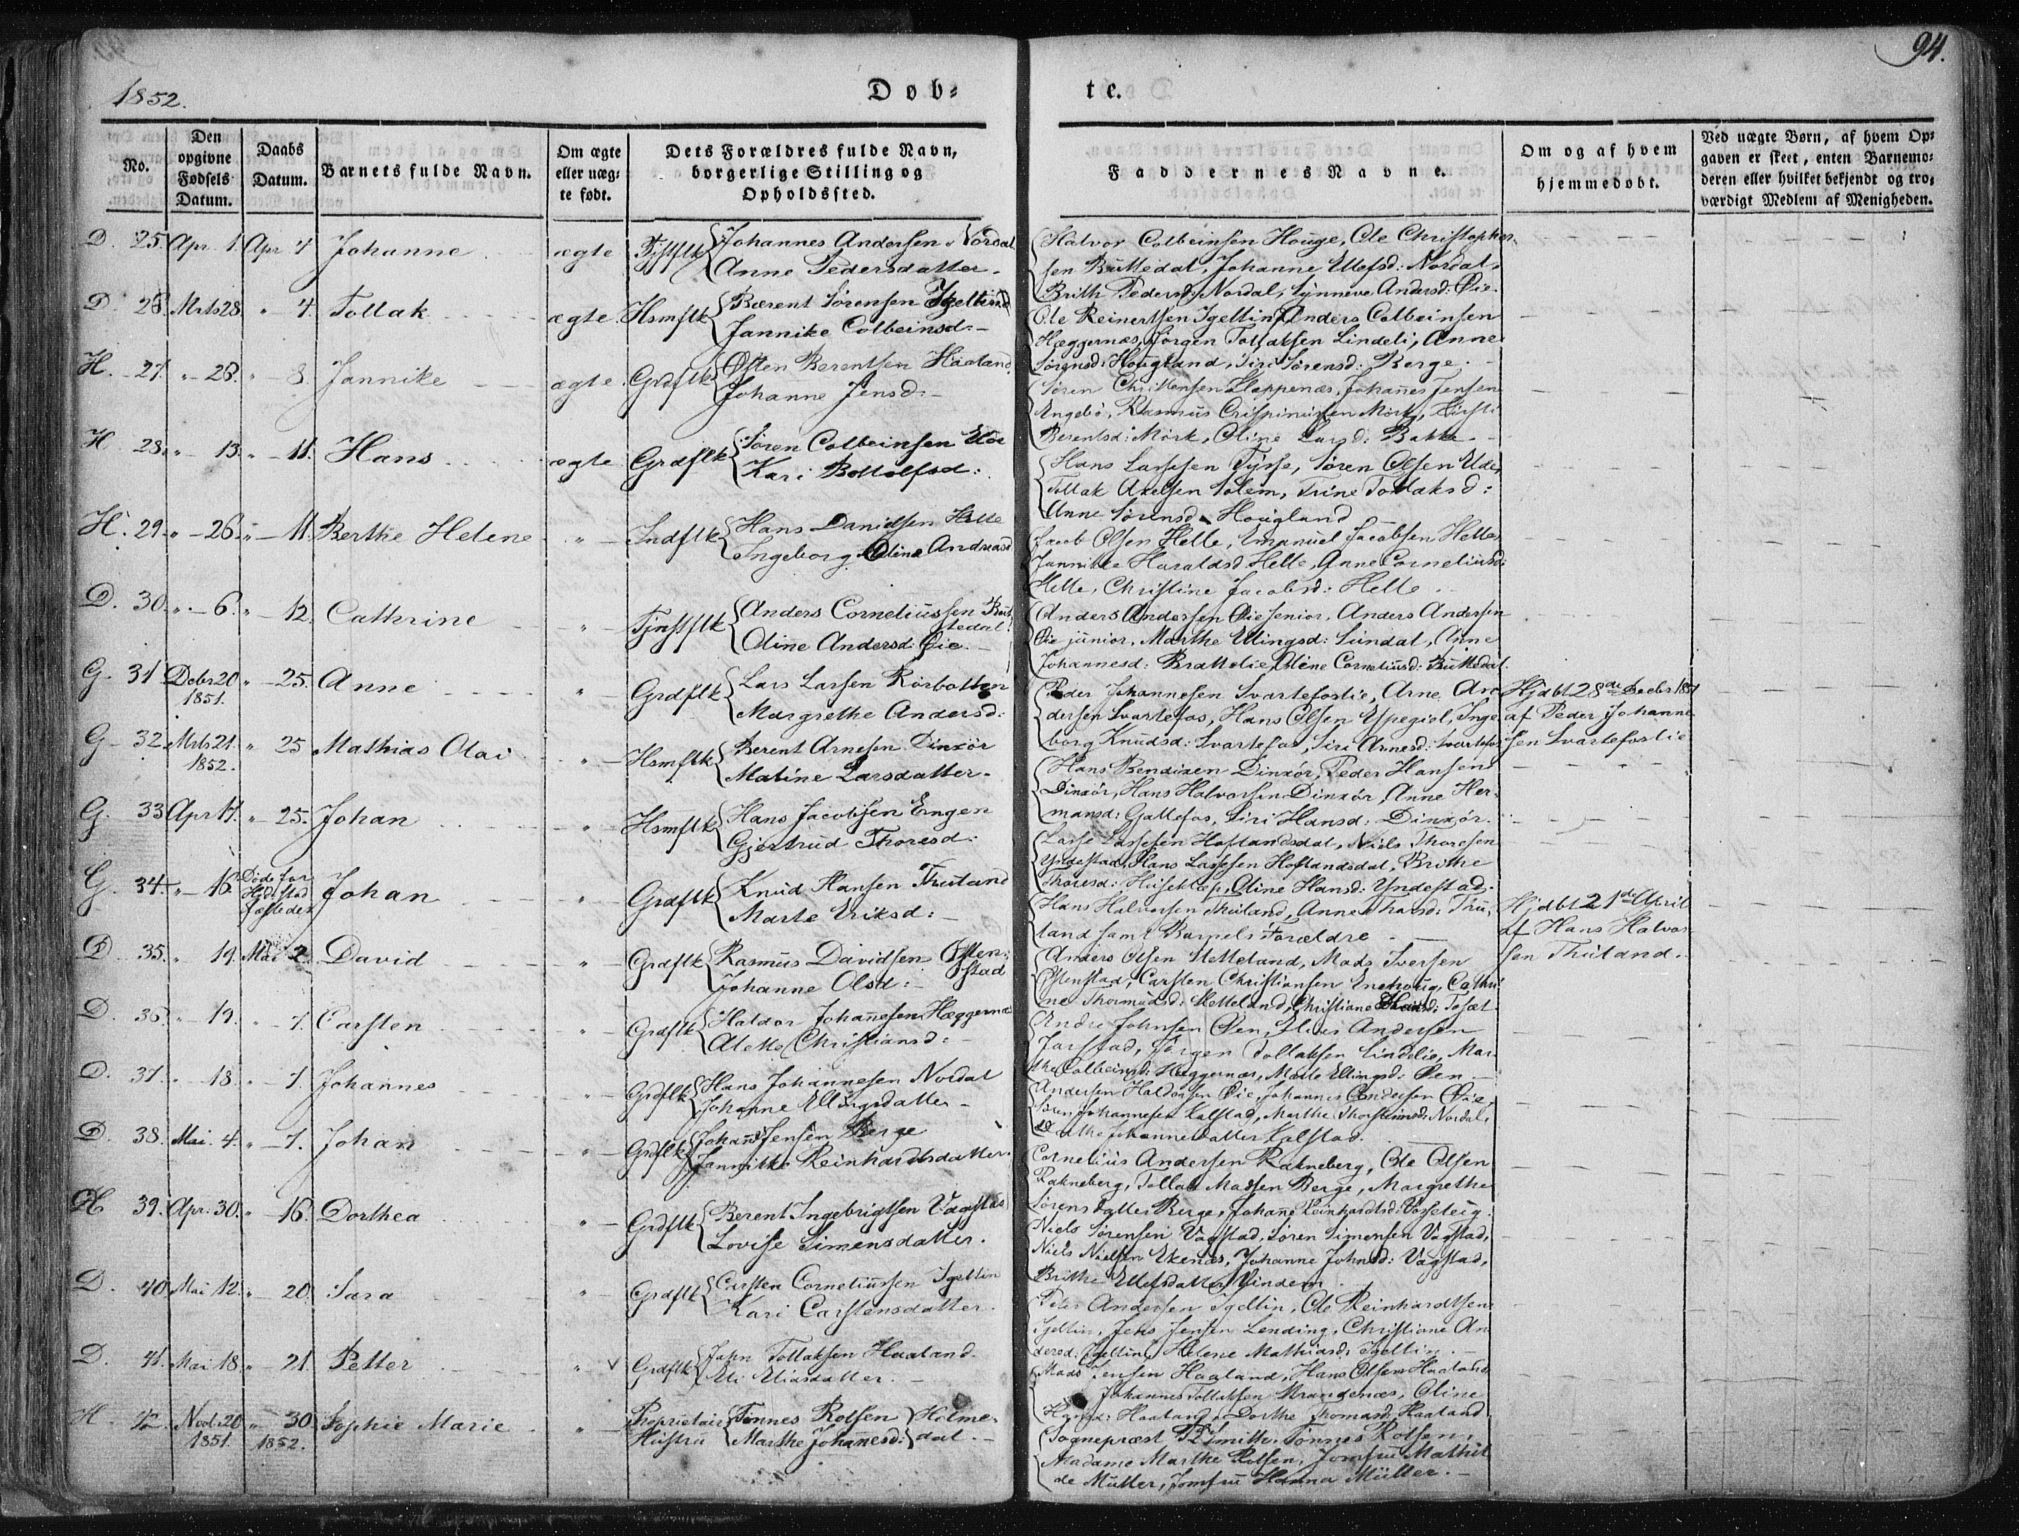 94.
1852.
Døb-
te.
No.
Den opgivne Fødsels Datum.
Daabs Datum.
Barnets fulde Navn.
Om ægte eller uægte født.
Dets Forældres fulde Navn, borgerlige Stilling og Opholdssted.
Faddernes Navne.
Om og af hvem hjemmedøbt.
Ved uægte Børn, af hvem Opgaven er skeet, enten Barnemoderen eller hvilket bekjendt og troværdigt Medlem af Menigheden.
D. 25. Apr 1. Apr 4 Johanne ægte Tjstflk Johannes Andersen Nordal
Anne Pedersdatter
Halvor Colbeinsen Houge, Ole Christopher-
sen Buttedal, Johanne Ellefsd: Nordal,
Brith Pedersd: Nordal, Synneve Andersd: Øie
D. 26. Mrts 28. " 4. Tollak ægte Hsmflk Bærent Sørensen Igeltind
Jannike Colbeinsd:
Ole Reinertsen Igeltin, Anders Colbeinsen
Hæggernæs, Jørgen Tollaksen Lindeli, Anne
Sørensd: Hougland, Siri Sørensd: Berge.
H. 27. " 28. " 8. Jannike ægte Grdflk Østen Berentsen Haaland
Johanne Jensd:
Søren Christensen Klappenæs, Johanes Jensen
Engebø, Rasmus Crispinusen Mørk,
Berentsd: Mørk, Oline Larsd: Bakke
H. 28. " 13. " 11. Hans ægte Grdflk Søren Colbeinsen
Kari Bottolfsd:
Hans Larsen Tysse, Søren Olsen
Tollak Axelsen Solem, Trine Tollaksd:
Anne Sørensd. Hougland
H. 29. " 26. " 11. Berthe Helene " Indflk Hans Danidsen Helle
Ingeborg Oline Andreasd
Jacob Olsen Helle, Emanuel Jacobsen Helle,
Jannike Haraldsd Helle, Anne Corneliusd:
Helle, Christine Jacobsd: Helle
D. 30. " 6. " 12. Cathrine " Tjnstflk Anders Corneliussen But
tedal
Oline Andersd: Øie.
Anders Andersen Øie senior, Anders Andersen
Øie junior, Marthe Ellingsd: Sundal, Anne
Johannesd: Brattelie, Oline Corneliusd: Buttedal
G. 31 Debr 20 1851. " 25. Anne " Grdflk Lars Larsen Rørbotten
Margrethe Andersd:
Peder Johannesen Svartefoslie, Arne An
dersen Svartefos, Hans Olsen Ypegjel, Inge
borg Knudsd: Svartefos, Siri Arnesd: Svartefos
Hjdbt 28de Decbr 1851
af Peder Johanne
sen Svartefoslie
G. 32. Mrts 21. 1852. " 25 Mathias Olai " Hsmflk Berent Arnesen Dinxør
Maline Larsdatter
Hans Bendixen Dinxør, Peder Hansen
Dinxør, Hans Halvorsen Dinxør, Anne Her-
mansd: Gjellefos, Siri Hansd: Dinxør.
G. 33 Apr 17. " 25. Johan " Hsmflk Hans Jacobsen Engen
Gjertrud Thoresd:
Lasse Lassesen Hoflandsdal, Niels Thoresen
Yndestad, Hans Lassesen Hoflandsdal, Brithe
Thoresd: Huseklep, Oline Hansd: Yndestad
G. 34. " 16. Døde før Hjdsstad fæstedes Johan " Grdflk Knud Hansen Truland
Marte Eriksd:
Hans Halvorsen Thuland, Anne Thoesd: Tru-
land samt Barnets Forældre
Hjdbt 21de April
af Hans Halvor
sen Thuland.
D. 35. " 19. Mai 2. David " Grdflk Rasmus Davidsen Østen-
stad
Johanne Olsd:
Anders Olsen Hetleland, Mads Iversen
Østenstad, Carsten Christiansen Inehoug, Cathri
ne Thormodsd: Hetleland, Christiane Hansd: Tofæt
D. 36. " 19. " 7. Carsten " Grdflk Haldor Johanesen Hæggernæs
Alette Christiansd:
Andre Johnsen Øen, Elias Andersen
Jarstad, Jørgen Tollaksen Lindelie, Mar-
the Colbeinsd: Hæggernæs, Marte Ellingsd: Øen
D. 37. " 18. " 7. Johannes Grdflk Hans Johannesen Nordal
Johanne Ellingsdatter
Andersen Haldorsen Øie, Johannes Andersen Øie,
Johannesen Kalstad, Marthe Thorsteinsd: Nordal,
Johannesdatter Kalstad.
D. 38. Mai 4. " 7. Johan " Grdflk Johan Jensen Berge
Jannikke Reinhardtsdatter
Cornelius Andersen Rakneberg, Ole Olsen
Rakneberg, Tollak Madsen Berge, Margrethe
Sørensdatter Berge, Johane Reinhardtsd: Vasseteig
H 39. Apr: 30. " 16. Dorthea " Grdflk Berent Ingebrigtsen Vagstad
Lovise Simensdatter.
Niels Sørensen Vagstad, Søren Simensen Vagstad,
Niels Nielsen Ekenæs, Johanne Johnsd: Vagstad,
Brithe Ellefsdatter Vindem.
D. 40. Mai 12. " 20. Sara " Grdflk Carsten Corneliussen Igeltin
Kari Carstensdatter.
Peter Andersen Igeltin, Ole Reinhardtsen
Igeltin, Jens Jensen Lending, Christiane An
dersd: Igeltin, Helene Mathiasd: Igeltin.
D. 41. Mai 18. " 21. Petter " Grdflk John Tollaksen Haaland
Eli Eliasdatter.
Mads Jensen Haaland, Hans Olsen Haaland
Johannes Tollaksen Vrangenæs, Oline
Haaland, Dorthe Thomasd: Haaland
H. 42 Novbr 20 1851. " 30. 1852. Sophie Marie " Proprietair Tønnes Rolfsen Holme-
Hustru Marthe Johanesd: dal.
Sognepræst Smith, Tønnes Rolfsen,
Madame Marthe Rolfsen, Jomfru Mathil
de Müller, Jomfru Hanna Müller.